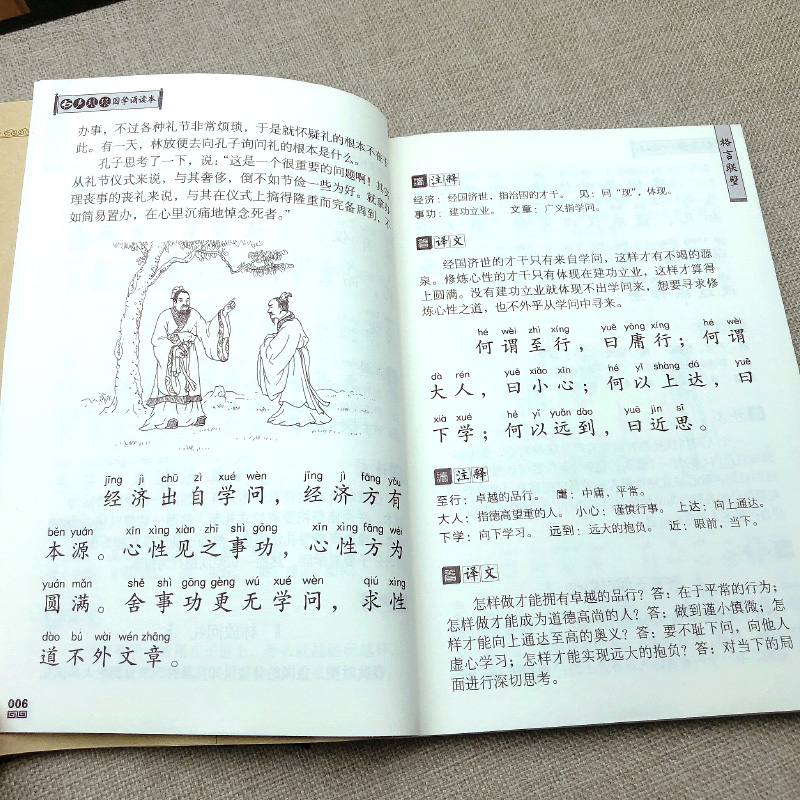 国学诵读本
办事，不过各种礼节非常烦琐，于是就怀疑礼的根本不在
此。有一天，林放便去向孔子询问礼的根本是什么。
孔子思考了一下，说：“这是一个很重要的问题啊！其
从礼节仪式来说，与其奢侈，倒不如节俭一些为好。就拿办
理丧事的丧礼来说，与其在仪式上搞得隆重而完备周到，不
如简易置办，在心里沉痛地悼念死者。”
jīng jì chū zì xué wèn jīng jì fāng yǒu
经济出自学问，经济方有
běn yuán xīn xìng xiàn zhī shì gōng xīn xìng fāng wéi
本源。心性见之事功，心性方为
yuán mǎn shě shì gōng gèng wú xué wèn qiú xìng
圆满。舍事功更无学问，求性
dào bú wài wén zhāng
道不外文章。
006
格言联璧
注释
经济：经国济世，指治国的才干。 见：同“现”，体现。
事功：建功立业。 文章：广义指学问。
译文
经国济世的才干只有来自学问，这样才有不竭的源
泉。修炼心性的才干只有体现在建功立业，这样才算得
上圆满。没有建功立业就体现不出学问来，想要寻求修
炼心性之道，也不外乎从学问中寻来。
hé wèi zhì xíng yuē yōng xíng hé wèi
何谓至行，曰庸行；何谓
dà rén yuē xiǎo xīn hé yǐ shàng dá yuē
大人，曰小心；何以上达，曰
xià xué hé yǐ yuǎn dào yuē jìn sī
下学；何以远到，曰近思。
注释
至行：卓越的品行。 庸：中庸，平常。
大人：指德高望重的人。 小心：谨慎行事。 上达：向上通达。
下学：向下学习。 远到：远大的抱负。 近：眼前，当下。
译文
怎样做才能拥有卓越的品行？答：在于平常的行为；
怎样做才能成为道德高尚的人？答：做到谨小慎微；怎
样才能向上通达至高的奥义？答：要不耻下问，向他人
虚心学习；怎样才能实现远大的抱负？答：对当下的局
面进行深切思考。